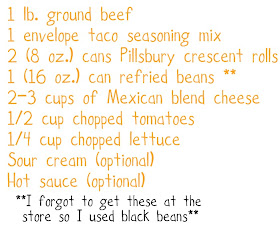 1 lb. ground beef
1 envelope taco seasoning mix
2 (8 oz.) cans Pillsbury crescent rolls
1 (16 oz.) can refried beans **
2-3 cups of Mexican blend cheese
1/2 cup chopped tomatoes
1/4 cup chopped lettuce
Sour cream (optional)
Hot sauce (optional)
**I forgot to get these at the
store so I used black beans**